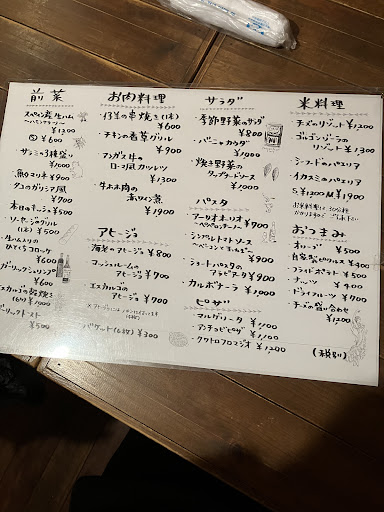 前菜
スペイン産生ハム
¥1200
¥600
サラミの3種盛り
¥1000
魚のマリネ ¥900
タコのガリシア風
¥700
本日のキッシュ ¥500
ソーセージのグリル
(2本) ¥500
生ハム入りの
ひとくちコロッケ
¥600
ガーリックシュリンプ
¥600
エスカルゴの殻焼き
(6ヶ) ¥1000
ガーリックトースト
¥500
お肉料理
・仔羊の串焼き(1本)
¥600
・チキンの香草グリル
¥900
・アンガス牛の
ローマ風カツレツ
¥1300
・牛ホホ肉の
赤ワイン煮
¥1900
アヒージョ
海老のアヒージョ ¥800
マッシュルームの
アヒージョ ¥700
エスカルゴの
アヒージョ ¥900
バゲット(6枚) ¥300
サラダ
季節野菜のサラダ
¥800
・バーニャカウダ
¥1000
・焼き野菜の
¥1000
パスタ
・アーリオオーリオ ¥700
〜ペペロンチーノ〜
・シンプレトマトソース
¥800
・ショートパスタの
アラビアータ ¥900
カルボナーラ ¥1,000
ピザ
・マルゲリータ ¥1,100
・アンチョビピザ ¥1,100
・クワトロフロマッジオ ¥1,200
米料理
チーズのリゾット ¥1200
ゴルゴンゾーラの
リゾット ¥1300
シーフードのパエリア
イカスミのパエリア
S ¥1300 M ¥1900
おつまみ
オリーブ ¥500
自家製ピクルス ¥400
フライドポテト ¥500
ナッツ ¥400
ドライフルーツ ¥700
チーズの盛り合わせ
¥1200
(税別)